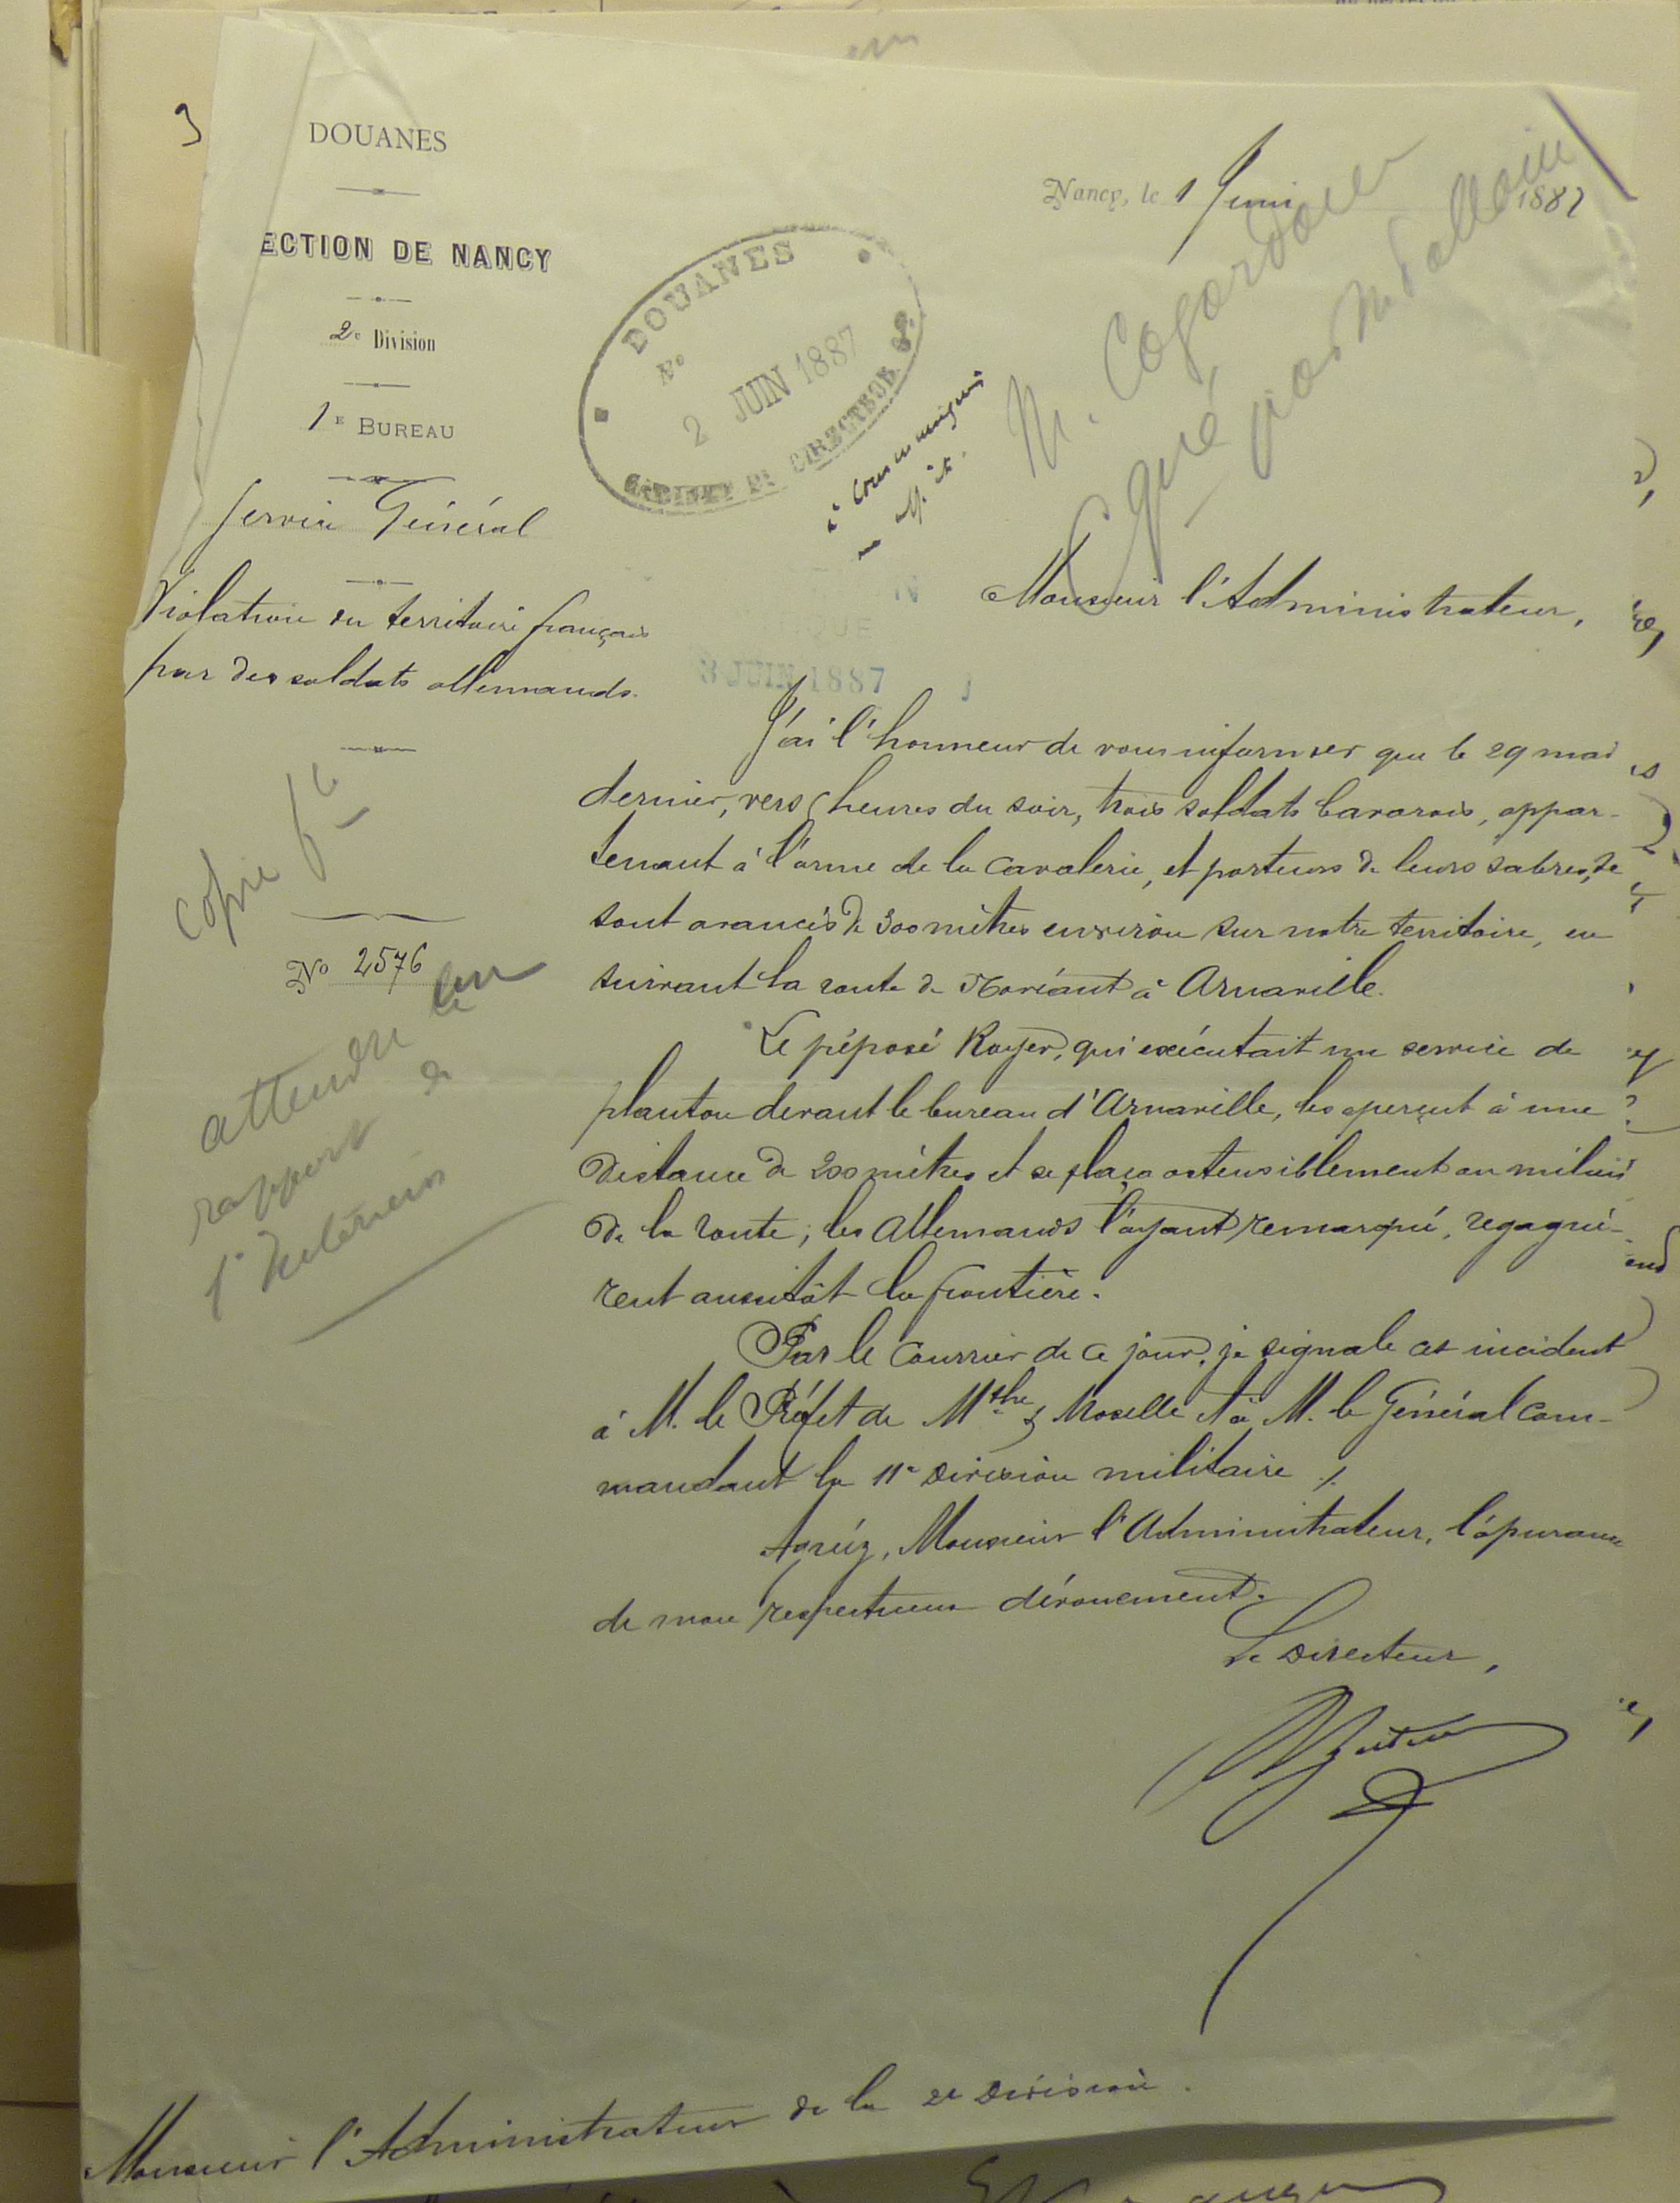 DOUANES
ECTION DE NANCY
2e Division
1E BUREAU
Service Général
Violation du territoire français
par des soldats allemands.
copie
No 2576
attendre un
rapport de
l'Intérieur
DOUANES
No
2 JUIN 1887
CABINET DU DIRECTEUR GAL
à communiquer
3 JUIN 1887
Nancy, le 1 Juin 1887
M.
Monsieur l'Administrateur,
J'ai l'honneur de vous informer que le 29 mai
dernier, vers heures du soir, trois soldats bavarois, appar-
tenant à l'arme de la cavalerie, et porteurs de leurs sabres, se
sont avancés de 300 mètres environ sur notre territoire, en
suivant la route de Novéant à Arnaville.
Le préposé Royer, qui exécutait un service de
planton devant le bureau d'Arnaville, les aperçut à une
distance de 200 mètres et se plaça ostensiblement au milieu
de la route; les Allemands l'ayant remarqué, regagnè-
rent aussitôt la frontière.
Par le courrier de ce jour, je signale cet incident
à M. le Préfet de Mthe & Moselle et à M. le Général Com-
mandant la 11e Division militaire ./.
Agréez, Monsieur l'Administrateur, l'assurance
de mon respectueux dévouement.
Le Directeur,
Monsieur l'Administrateur de la 2e Division.